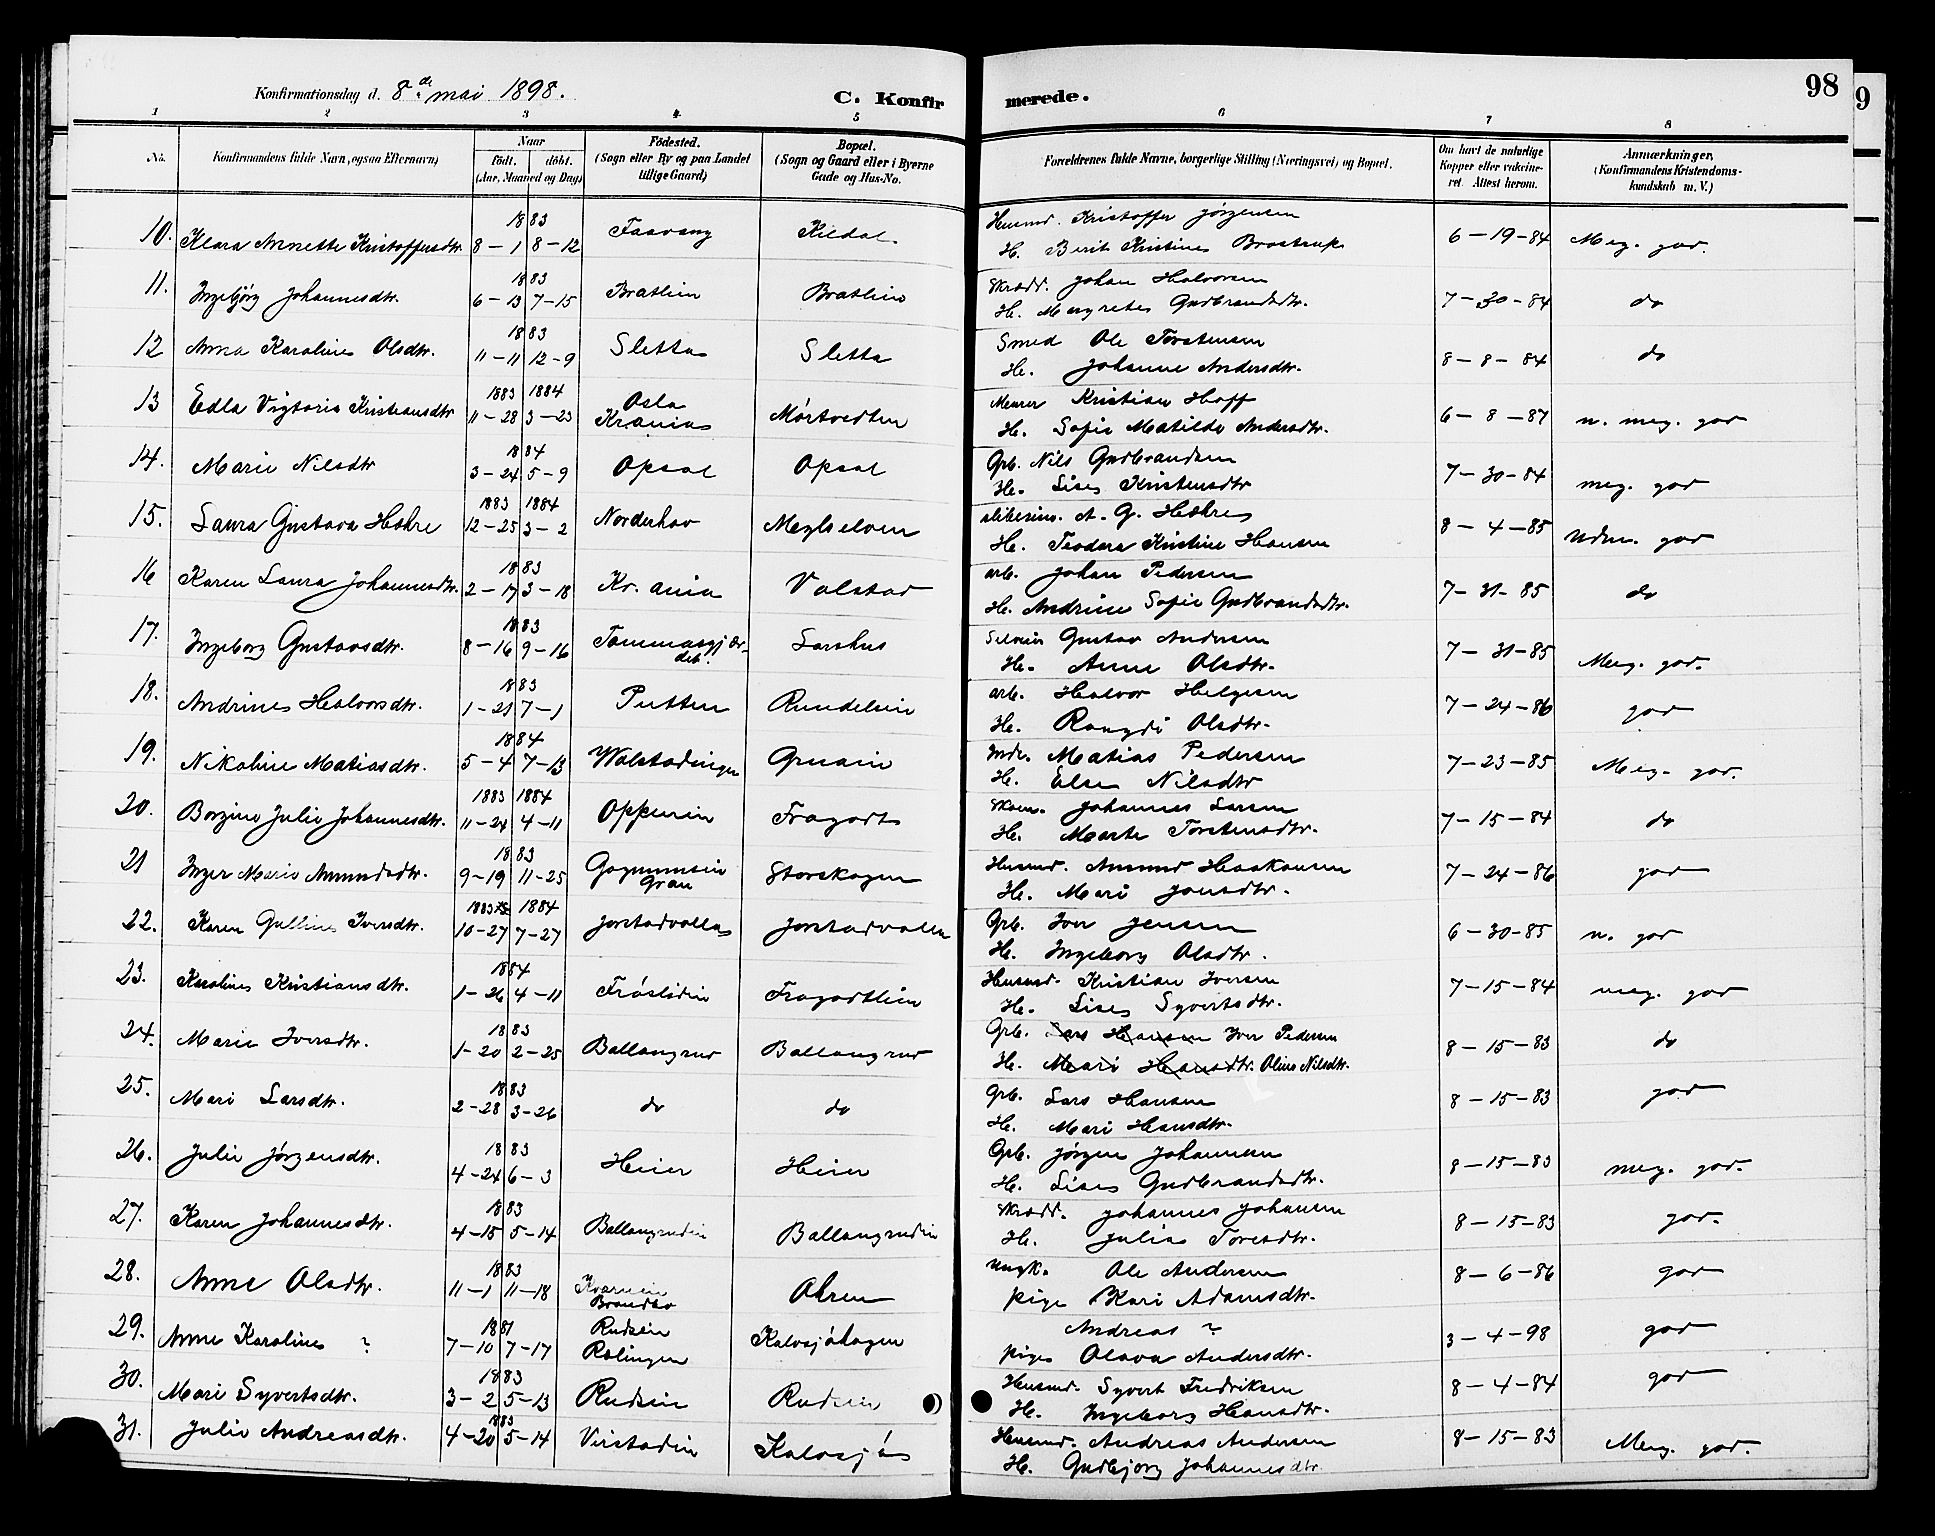 98
9
Konfirmationsdag d. 8de mai 1898.
C. Konfirmerede.
1 2 3 4 5 6 7 8
No.
Konfirmandens fulde Navn, ogsaa Efternavn)
Naar
födt. döbt.
(Aar, Maaned og Dag)
Födested.
(Sogn eller By og paa Landet
tillige Gaard)
Bopæl.
(Sogn og Gaard eller i Byerne
Gade og Hus-No.
Forældrenes fulde Navne, borgerlige Stilling (Næringsvei) og Bopæl.
Om havt de naturlige
Kopper eller vakcine-
ret. Attest herom.
Anmærkninger,
(Konfirmandens Kristendoms-
kundskab m. V.)
1883 Husmd. Kristoffer Jørgensen
10. Klara Annette Kristoffersdtr. 8-1 8-12 Faavang Kildal H. Berit Kristine 6-19-84 Meg. god.
1883 Skrædd. Johan Halvorsen
11. Ingebjörg Johannesdtr. 6-13 7-15 Bratlien Bratlien H. Margrete Gudbrandsdtr. 7-30-84 do
1883 Smed Ole Torstensen
12 Anna Karoline Olsdtr. 11-11 12-9 Sletta Sletta H. Johanne Andersdtr. 8-8-84 do
1883 1884 Oslo Murer Kristian Hoff
13 Edla Vigtoria Kristiansdtr 11-28 3-23 Krania Mörtvedten H. Sofie Matilde Andersdtr. 6-8-87 n. meg. god
1884 Grb. Nils Gudbrandsen
14. Marie Nilsdtr 3-24 5-9 Opsal Opsal H. Lise Kristensdtr 7-30-84 meg. god
1883 1884 A. G. Hæhre
15. Laura Gustava Hæhre 12-25 3-2 Norderhov Meglselven H. Teodora Kristine Hansen 8-4-85 Udm. god
1883 arb. Johan Pedersen
16 Karen Laura Johannesdtr. 2-17 3-18 Kr. ania Valstad H. Andrine Sofie Gudbrandsdtr. 7-31-85 do
1883 Gustav Andersen
17. Ingeborg Gustavsdtr. 8-16 9-16 Tommasgjær-det. Larshus H. Anne Olsdtr. 7-31-85 Meg. god.
1883 arb. Halvor Helgesen
18. Andrine Halvorsdtr. 1-21 7-1 Putten Rundelein H. Rangdi Olsdtr. 7-24-86 god
1884 Inde. Matias Pedersen
19. Nikoline Matiasdtr. 5-4 7-13 Walstadingen Gruain H. Else Nilsdtr 7-23-85 Meg. god.
1883 1884 Skom. Johannes Larsen
20. Borgine Julie Johannesdtr. 11-24 4-11 Oppenin Fragodt H. Marte Torstensdtr. 7-15-84 do
1883 Husmd. Amund Haakonsen
21 Inger Marie Amundsdtr. 9-19 11-25 Gagnumsein Gran Storskogen H. Mari Jonsdtr. 7-24-86 god
1883 1884 Grb. Iver Jensen
22. Karen Gulline Iversdtr. 10-27 7-27 Jorstadvolla Jorstadvolla H. Ingeborg Olsdtr. 6-30-85 n. god
1884 Husmd. Kristian Iversen
23. Karoline Kristiansdtr. 1-26 4-11 Fröslidin Fragodtlien H. Lise Syvertsdtr. 7-15-84 meg. god
1883 Grb. Lars Hansen Iver Pedersen
24. Marie Iversdtr. 1-20 2-25 Ballangrud Ballangrud H. Mari Hansdtr. Oline Nilsdtr. 8-15-83 do
1883 Grb. Lars Hansen
25. Mari Larsdtr. 2-28 3-26 do do H. Mari Hansdtr. 8-15-83 god
1883 Grb. Jörgen Johannesen
26. Julie Jörgensdtr. 4-24 6-3 Heier Heier H. Lise Gudbrandsdtr. 8-15-83 meg. god.
1883 Skrædd. Johannes Johansen
27. Karen Johannesdtr. 4-15 5-14 Ballangrudin Ballangrudin H. Julia Toresdtr. 8-15-83 god.
1883 Ungk. Ole Andersen
28. Anne Olsdtr. 11-1 11-18 Kvarnein Brandbo Ohren pige Kari Adamsdtr. 8-6-86 god
1881 Rudsein Andreas ?
29. Anne Karoline ? 7-10 7-17 Rælingen Kalvsjöhagen pige Olava Andersdtr. 3-4-98 god
1883 Husmd. Syvert Fredriksen
30. Mari Syvertsdtr. 3-2 5-13 Rudsein Rudsein H. Ingeborg Hansdtr. 8-4-84 god
1883 Husmd. Andreas Andersen
31. Julie Andreasdtr. 4-20 5-14 Virstadin Kalvsjö H. Gudbjorg Johannesdtr. 8-15-83 Meg. god.